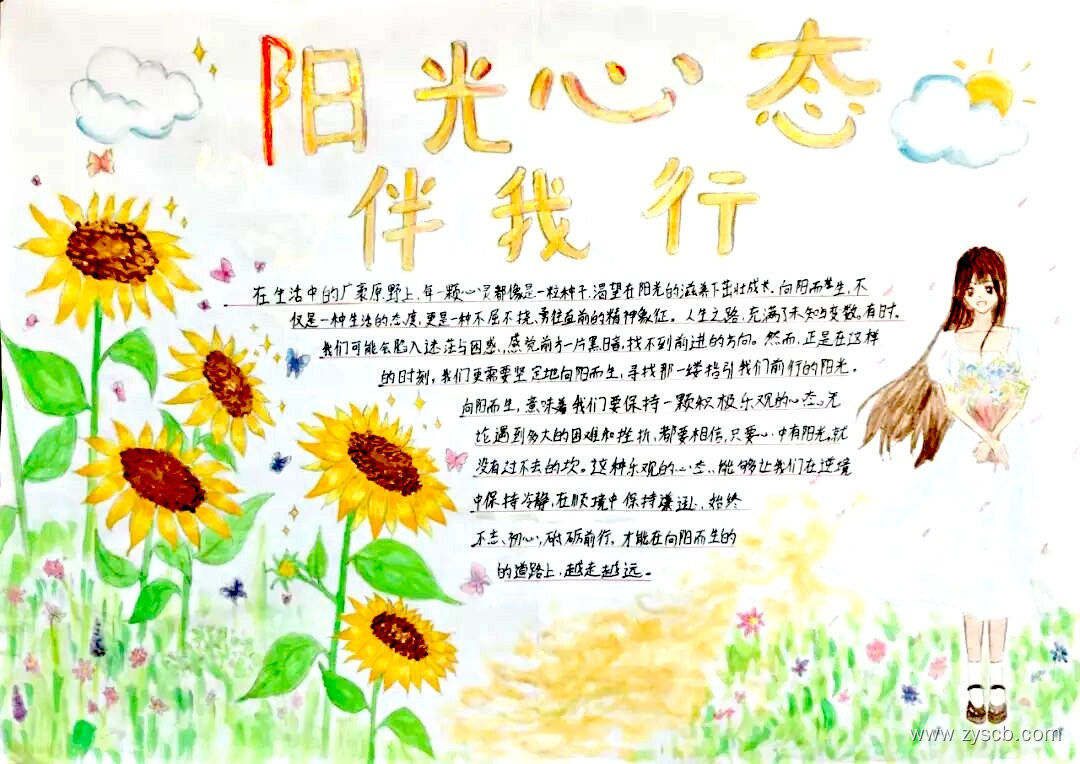 阳光心态
伴我行
在生活中的广袤原野上,每一颗心灵都像是一粒种子,渴望在阳光的滋养下茁壮成长。向阳而生,不
仅是一种生活的态度,更是一种不屈不挠、勇往直前的精神象征。人生之路,充满了未知与变数。有时,
我们可能会陷入迷茫与困惑,感觉前方一片黑暗,找不到前进的方向。然而,正是在这样
的时刻,我们更需要坚定地向阳而生,寻找那一缕指引我们前行的阳光。
向阳而生,意味着我们要保持一颗积极乐观的心态。无
论遇到多大的困难和挫折,都要相信,只要心中有阳光,就
没有过不去的坎。这种乐观的心态,能够让我们在逆境
中保持冷静,在顺境中保持谦逊,始终
不忘初心,砥砺前行,才能在向阳而生的
的道路上,越走越远。
www.zyscb.com